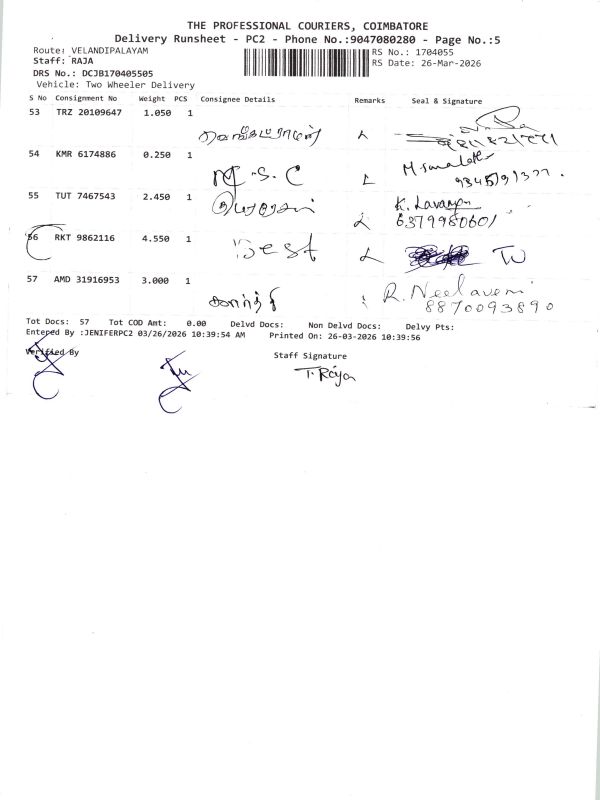 THE PROFESSIONAL COURIERS, COIMBATORE
Delivery Runsheet - PC2 - Phone No.:9047080280 - Page No.:5
Route: VELANDIPALAYAM
RS No.: 1704055
Staff: RAJA
RS Date: 26-Mar-2026
DRS No.: DCJB170405505
Vehicle: Two Wheeler Delivery
S No Consignment No Weight PCS Consignee Details Remarks Seal & Signature
53 TRZ 20109647 1.050 1
54 KMR 6174886 0.250 1 M.S.C
55 TUT 7467543 2.450 1 K. Lavanya
6379980601
56 RKT 9862116 4.550 1 Best
57 AMD 31916953 3.000 1 கார்த்தி R. Neelaveni
8870093890
Tot Docs: 57 Tot COD Amt: 0.00 Delvd Docs: Non Delvd Docs: Delvy Pts:
Entered By :JENIFERPC2 03/26/2026 10:39:54 AM Printed On: 26-03-2026 10:39:56
Verified By
Staff Signature
T. Raja